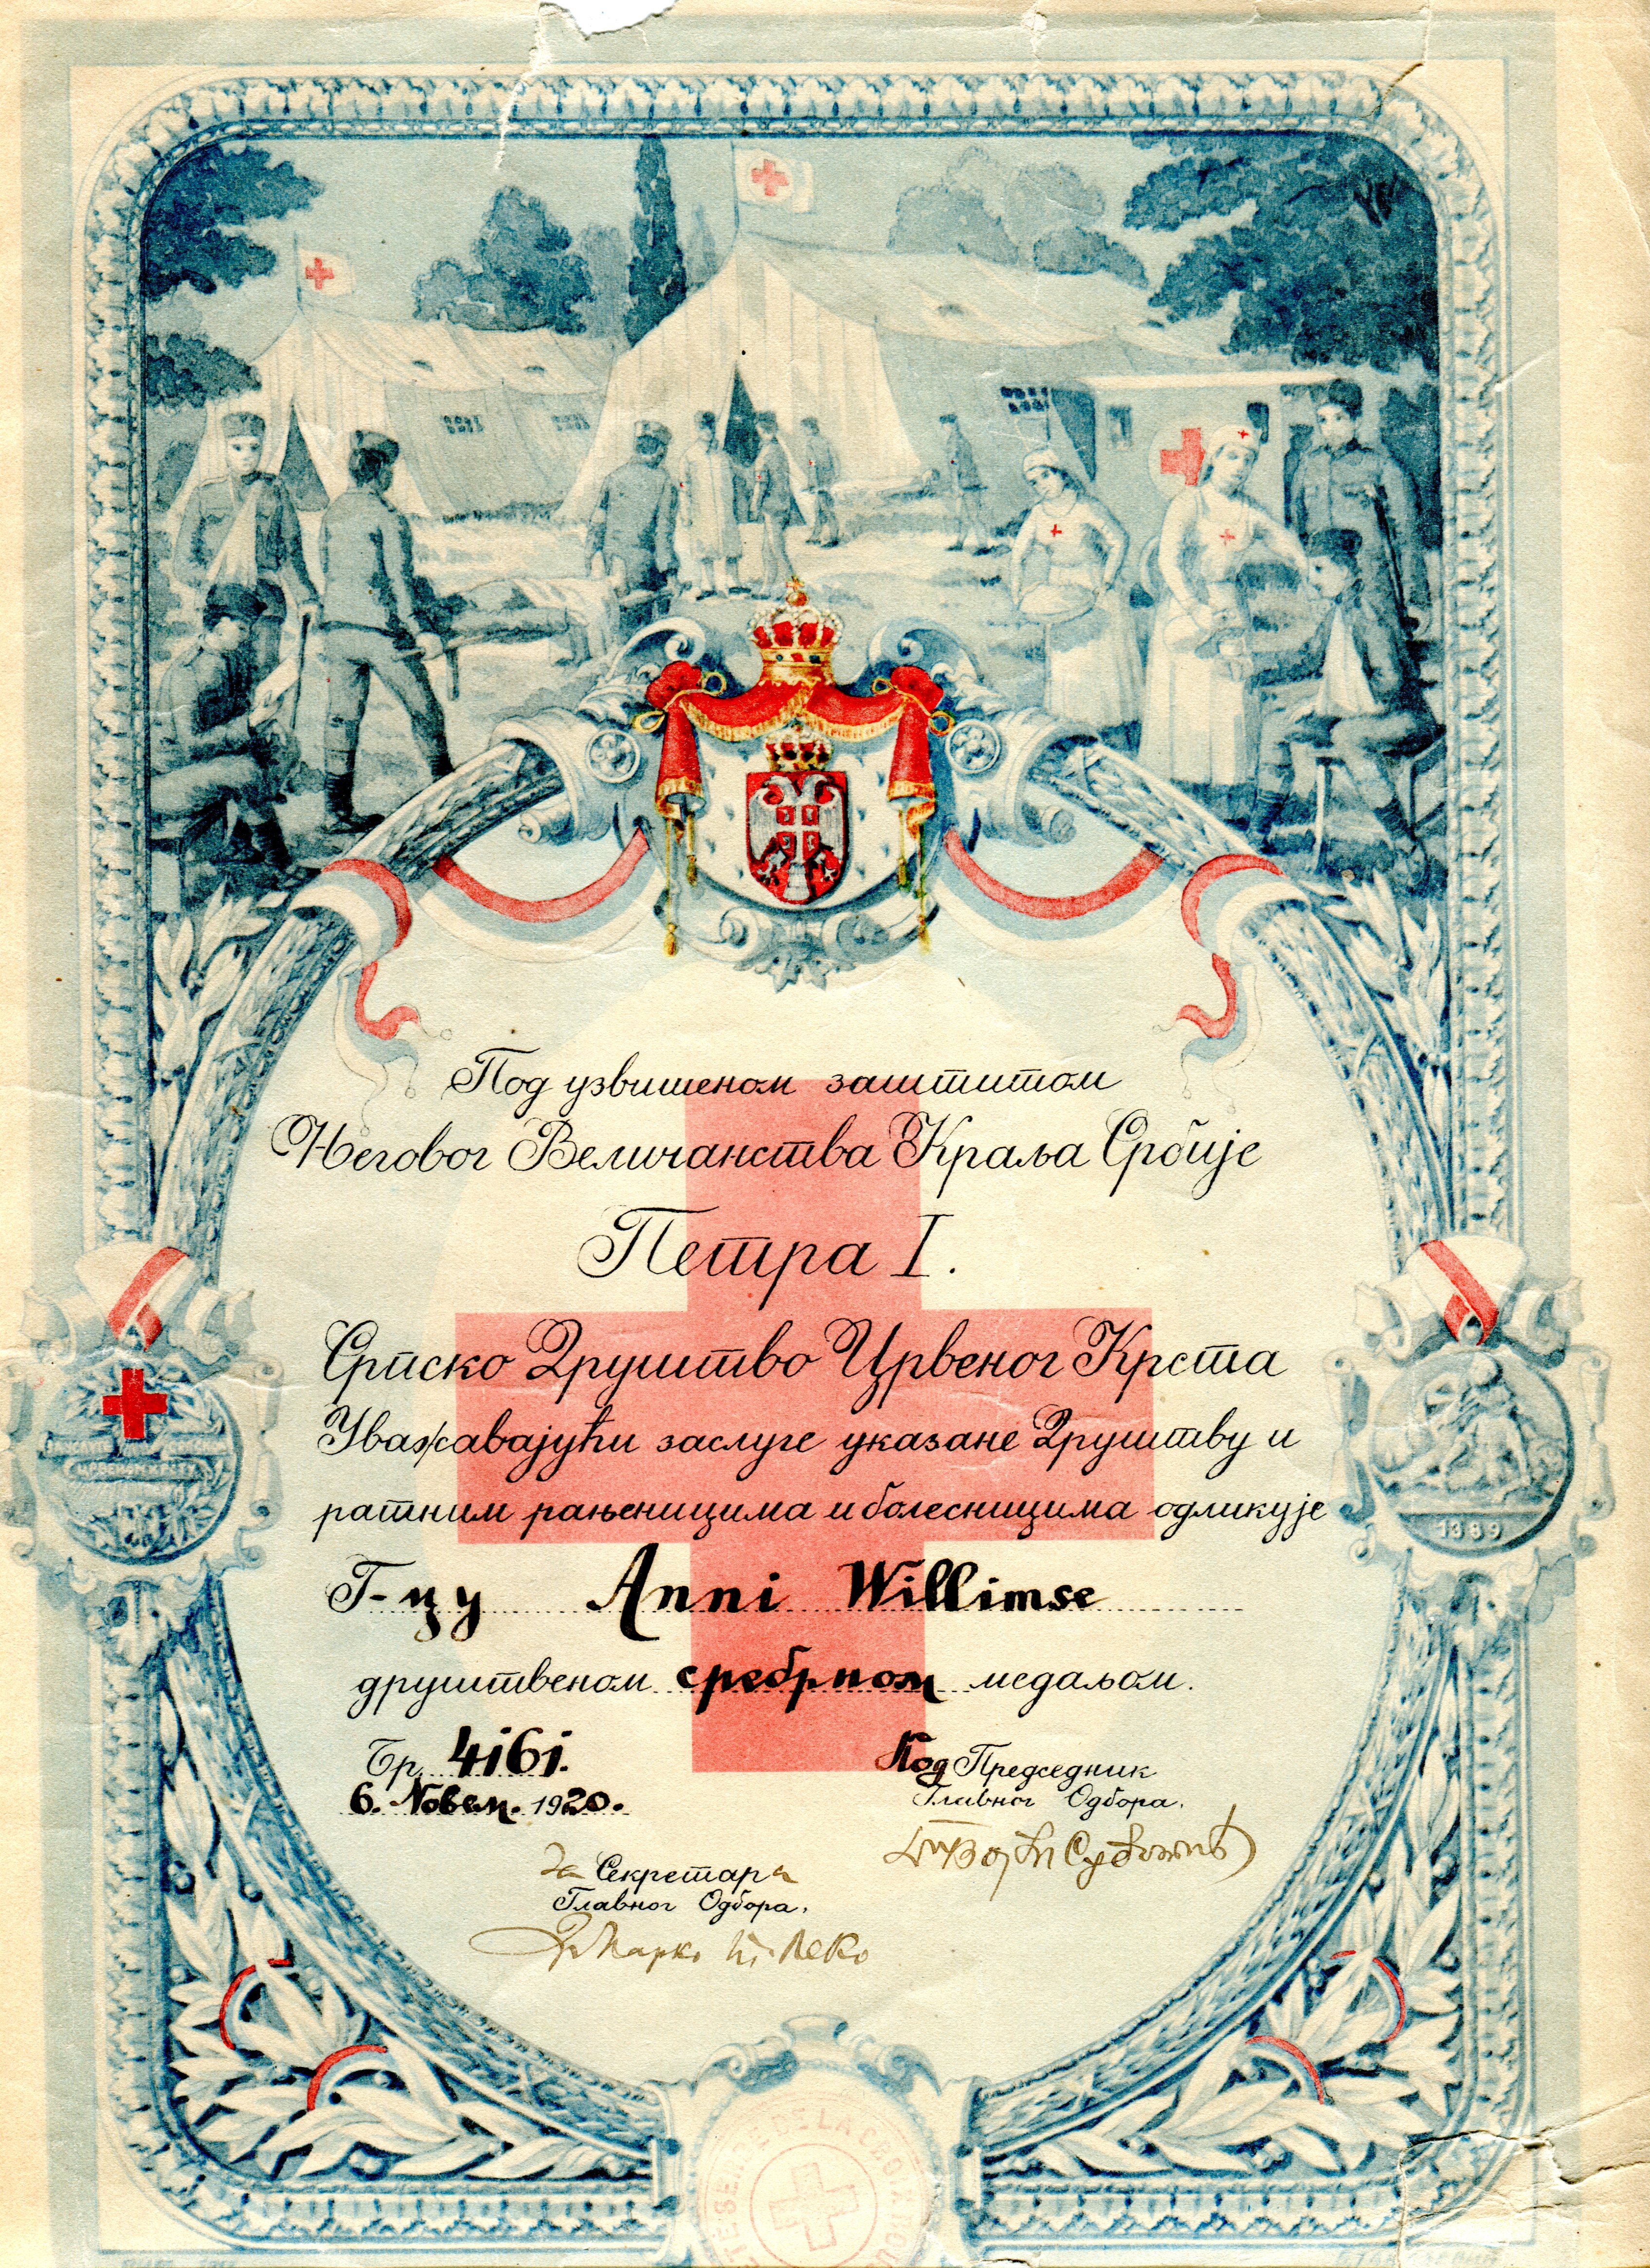 Под узвишеном заштитом
Његовог Величанства Краља Србије
Петра I.
Српско Друштво Црвеног Крста
Уважавајући заслуге указане Друштву и
ратним рањеницима и болесницима одликује
Г-цу Anni Willimse
друштвеном сребрном медаљом.
Бр. 4161.
6. Новем. 1920.
Под Председник
Главног Одбора,
За Секретара
Главног Одбора,
Др Марко Т. Леко
1389